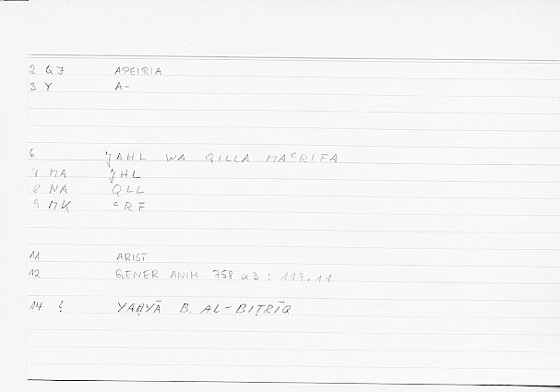 2 QJ APEIRIA
3 Y A-
6 ǦAHL WA QILLA MAʿRIFA
7 MA ǦHL
8 NA QLL
9 MK ʿRF
11 ARIST
12 GENER ANIM 758 a3 : 119.11
14 YAḤYĀ B. AL-BIṬRĪQ